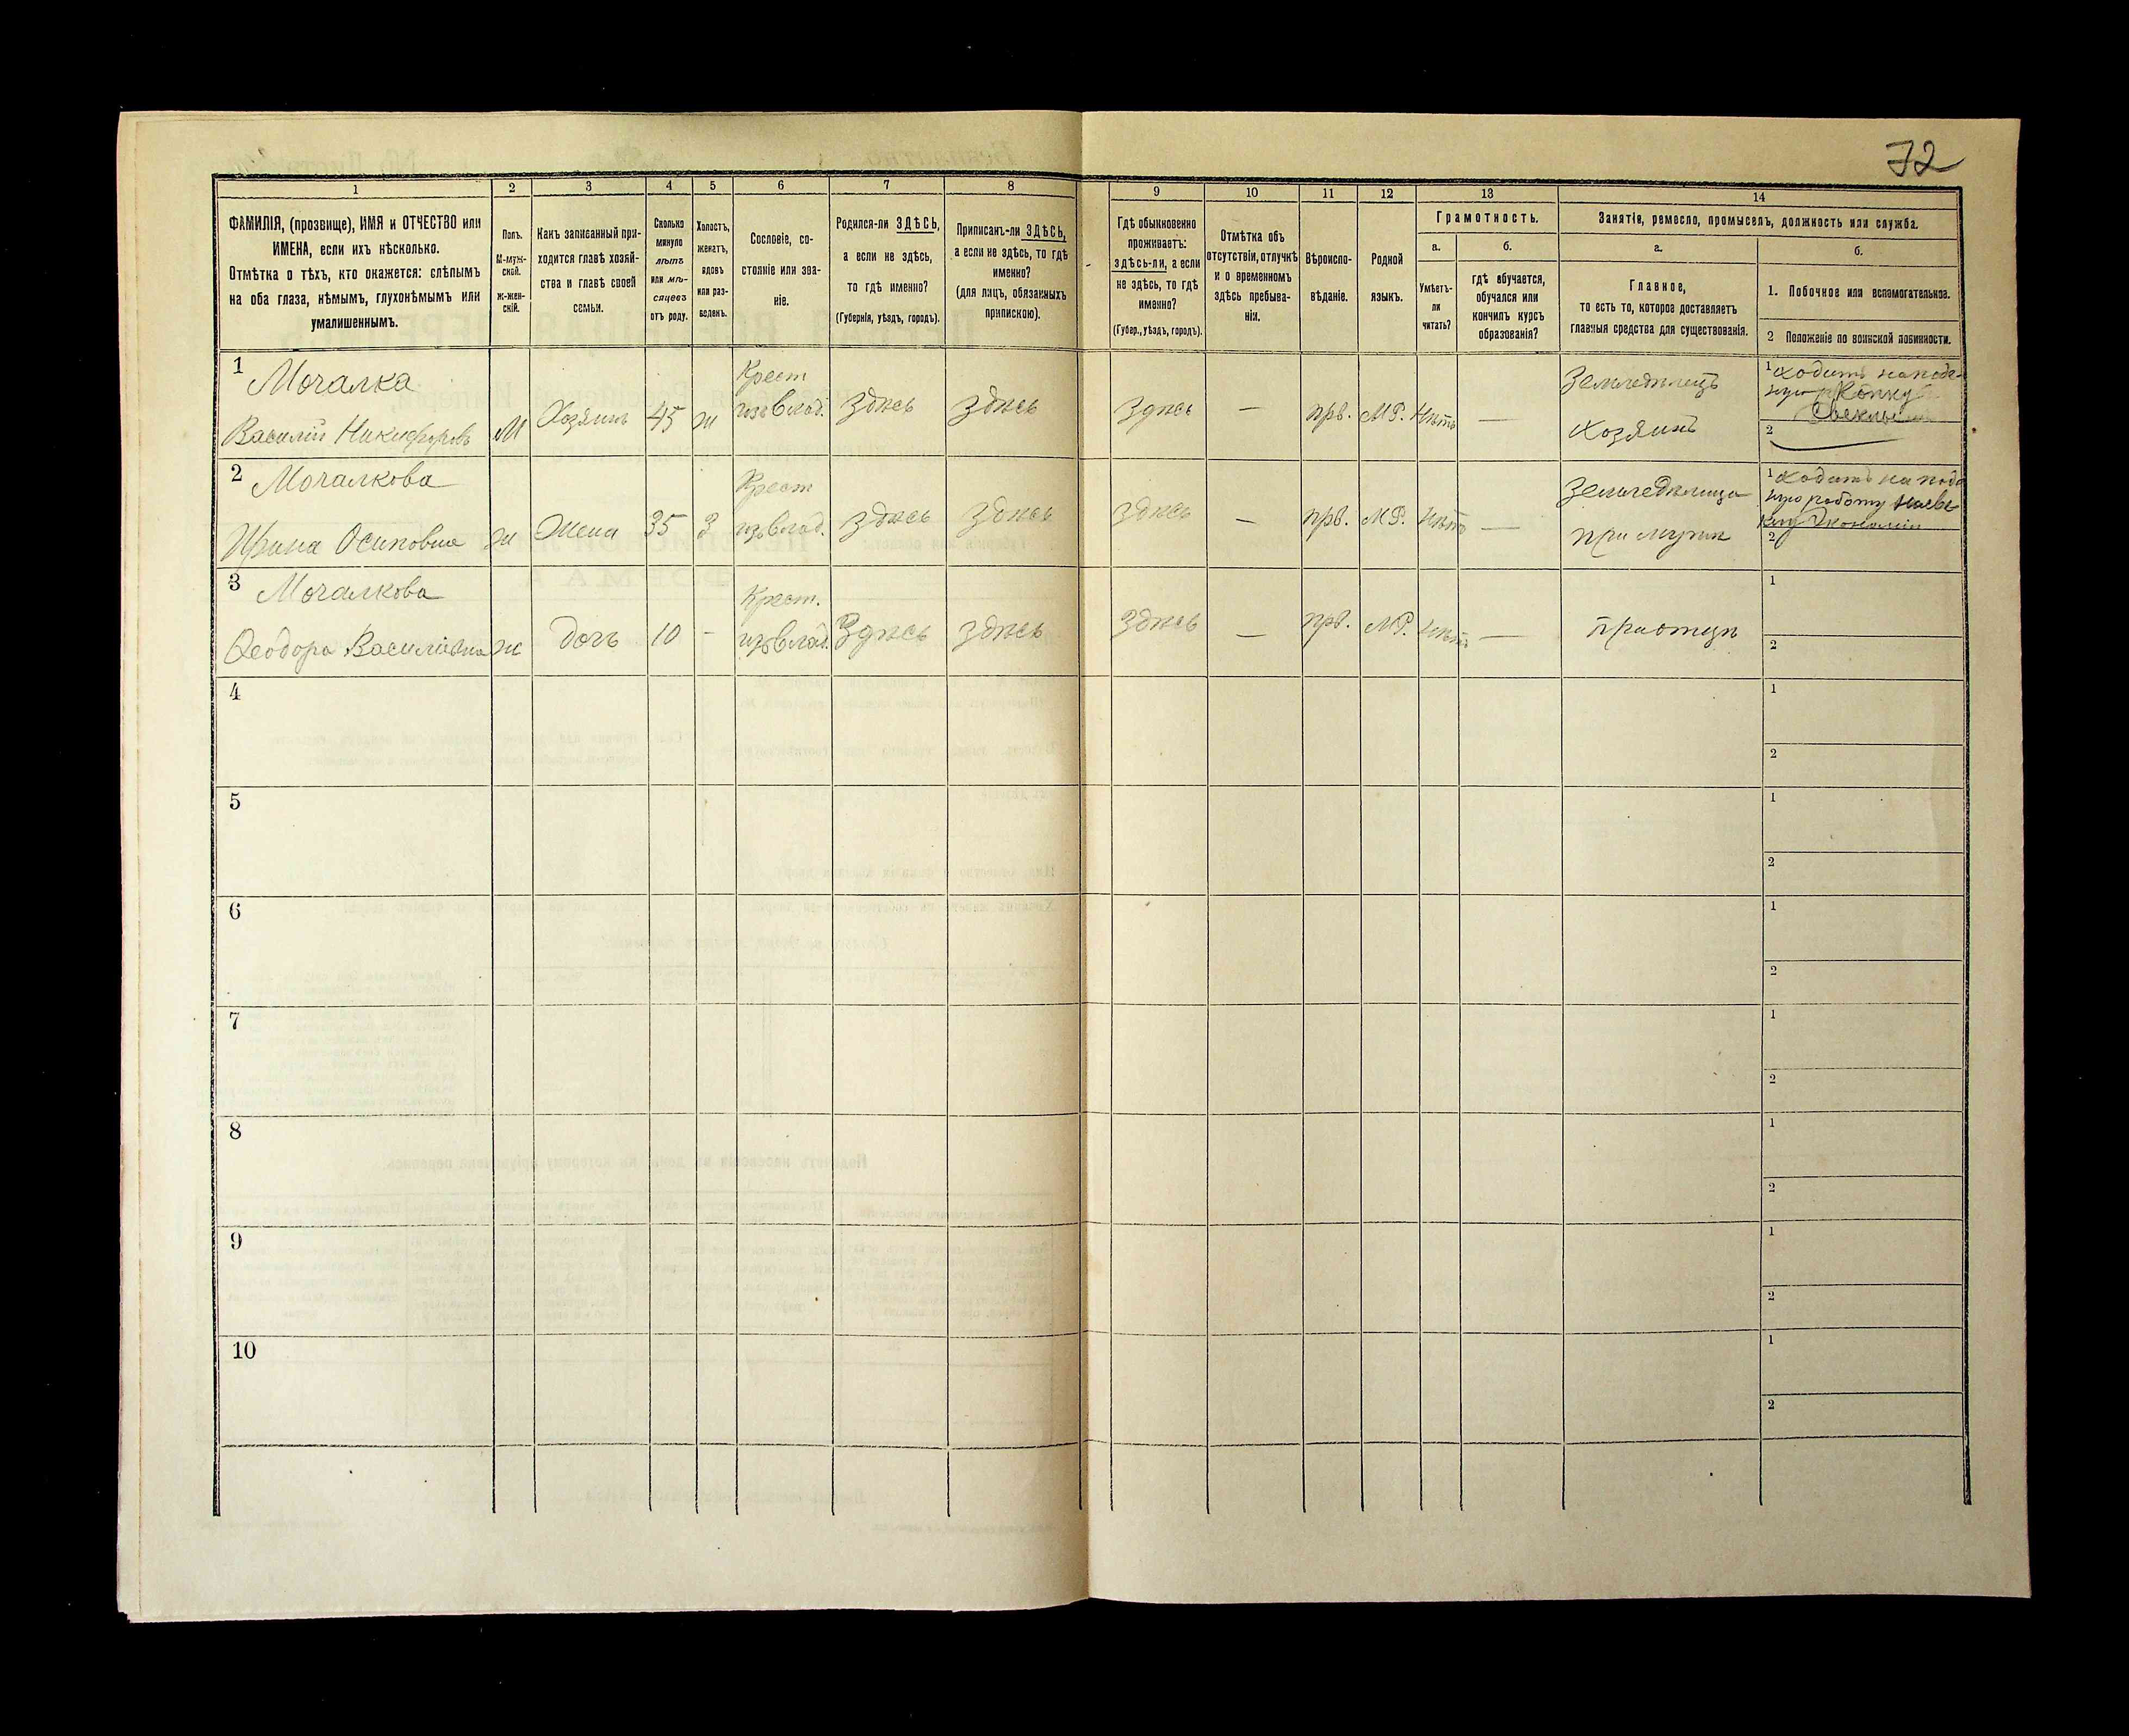 72
1
2
3
4
5
6
7
8
9
10
11
12
13
14
ФАМИЛІЯ, (прозвище), ИМЯ и ОТЧЕСТВО или
ИМЕНА, если ихъ нѣсколько.
Отмѣтка о тѣхъ, кто окажется: слѣпымъ
на оба глаза, нѣмымъ, глухонѣмымъ или
умалишеннымъ.
Полъ.
М-муж-
ской.
ж-жен-
скій.
Какъ записанный при-
ходится главѣ хозяй-
ства и главѣ своей
семьи.
Сколько
минуло
лѣтъ
или мѣ-
сяцевъ
отъ роду.
Холостъ,
женатъ,
вдовъ
или раз-
веденъ.
Сословіе, со-
стояніе или зва-
ніе.
Родился-ли ЗДѢСЬ,
а если не здѣсь,
то гдѣ именно?
(Губернія, уѣздъ, городъ).
Приписанъ-ли ЗДѢСЬ,
а если не здѣсь, то гдѣ
именно?
(для лицъ, обязанныхъ
припискою).
Гдѣ обыкновенно
проживаетъ:
здѣсь-ли, а если
не здѣсь, то гдѣ
именно?
(Губер., уѣздъ, городъ).
Отмѣтка объ
отсутствіи, отлучкѣ
и о временномъ
здѣсь пребыва-
ніи.
Вѣроиспо-
вѣданіе.
Родной
языкъ.
Грамотность.
а.
б.
Умѣетъ-
ли
читать?
гдѣ обучается,
обучался или
кончилъ курсъ
образованія?
Занятіе, ремесло, промыселъ, должность или служба.
а.
б.
Главное,
то есть то, которое доставляетъ
главныя средства для существованія.
1. Побочное или вспомогательное.
2 Положеніе по воинской повинности.
1 Мочалка
Василій Никифоровъ
М
Хозяинъ
45
ж
Крест
изъ влад.
Здѣсь
Здѣсь
Здѣсь
—
прв.
М.Р.
Нѣтъ
—
Земледѣлецъ
хозяинъ
1 Ходитъ на
Копку
2
2 Мочалкова
Ирина Осиповна
ж
Жена
35
З
Крест
изъ влад.
Здѣсь
Здѣсь
Здѣсь
—
прв.
М.Р.
Нѣтъ
—
Земледѣлица
при мужѣ
1 Ходитъ на
работу
Экономіи
2
3 Мочалкова
Феодора Василіевна
ж
дочь
10
-
Крест.
изъ влад.
Здѣсь
Здѣсь
Здѣсь
—
прв.
М.Р.
Нѣтъ
—
при отцѣ
1
2
4
1
2
5
1
2
6
1
2
7
1
2
8
1
2
9
1
2
10
1
2